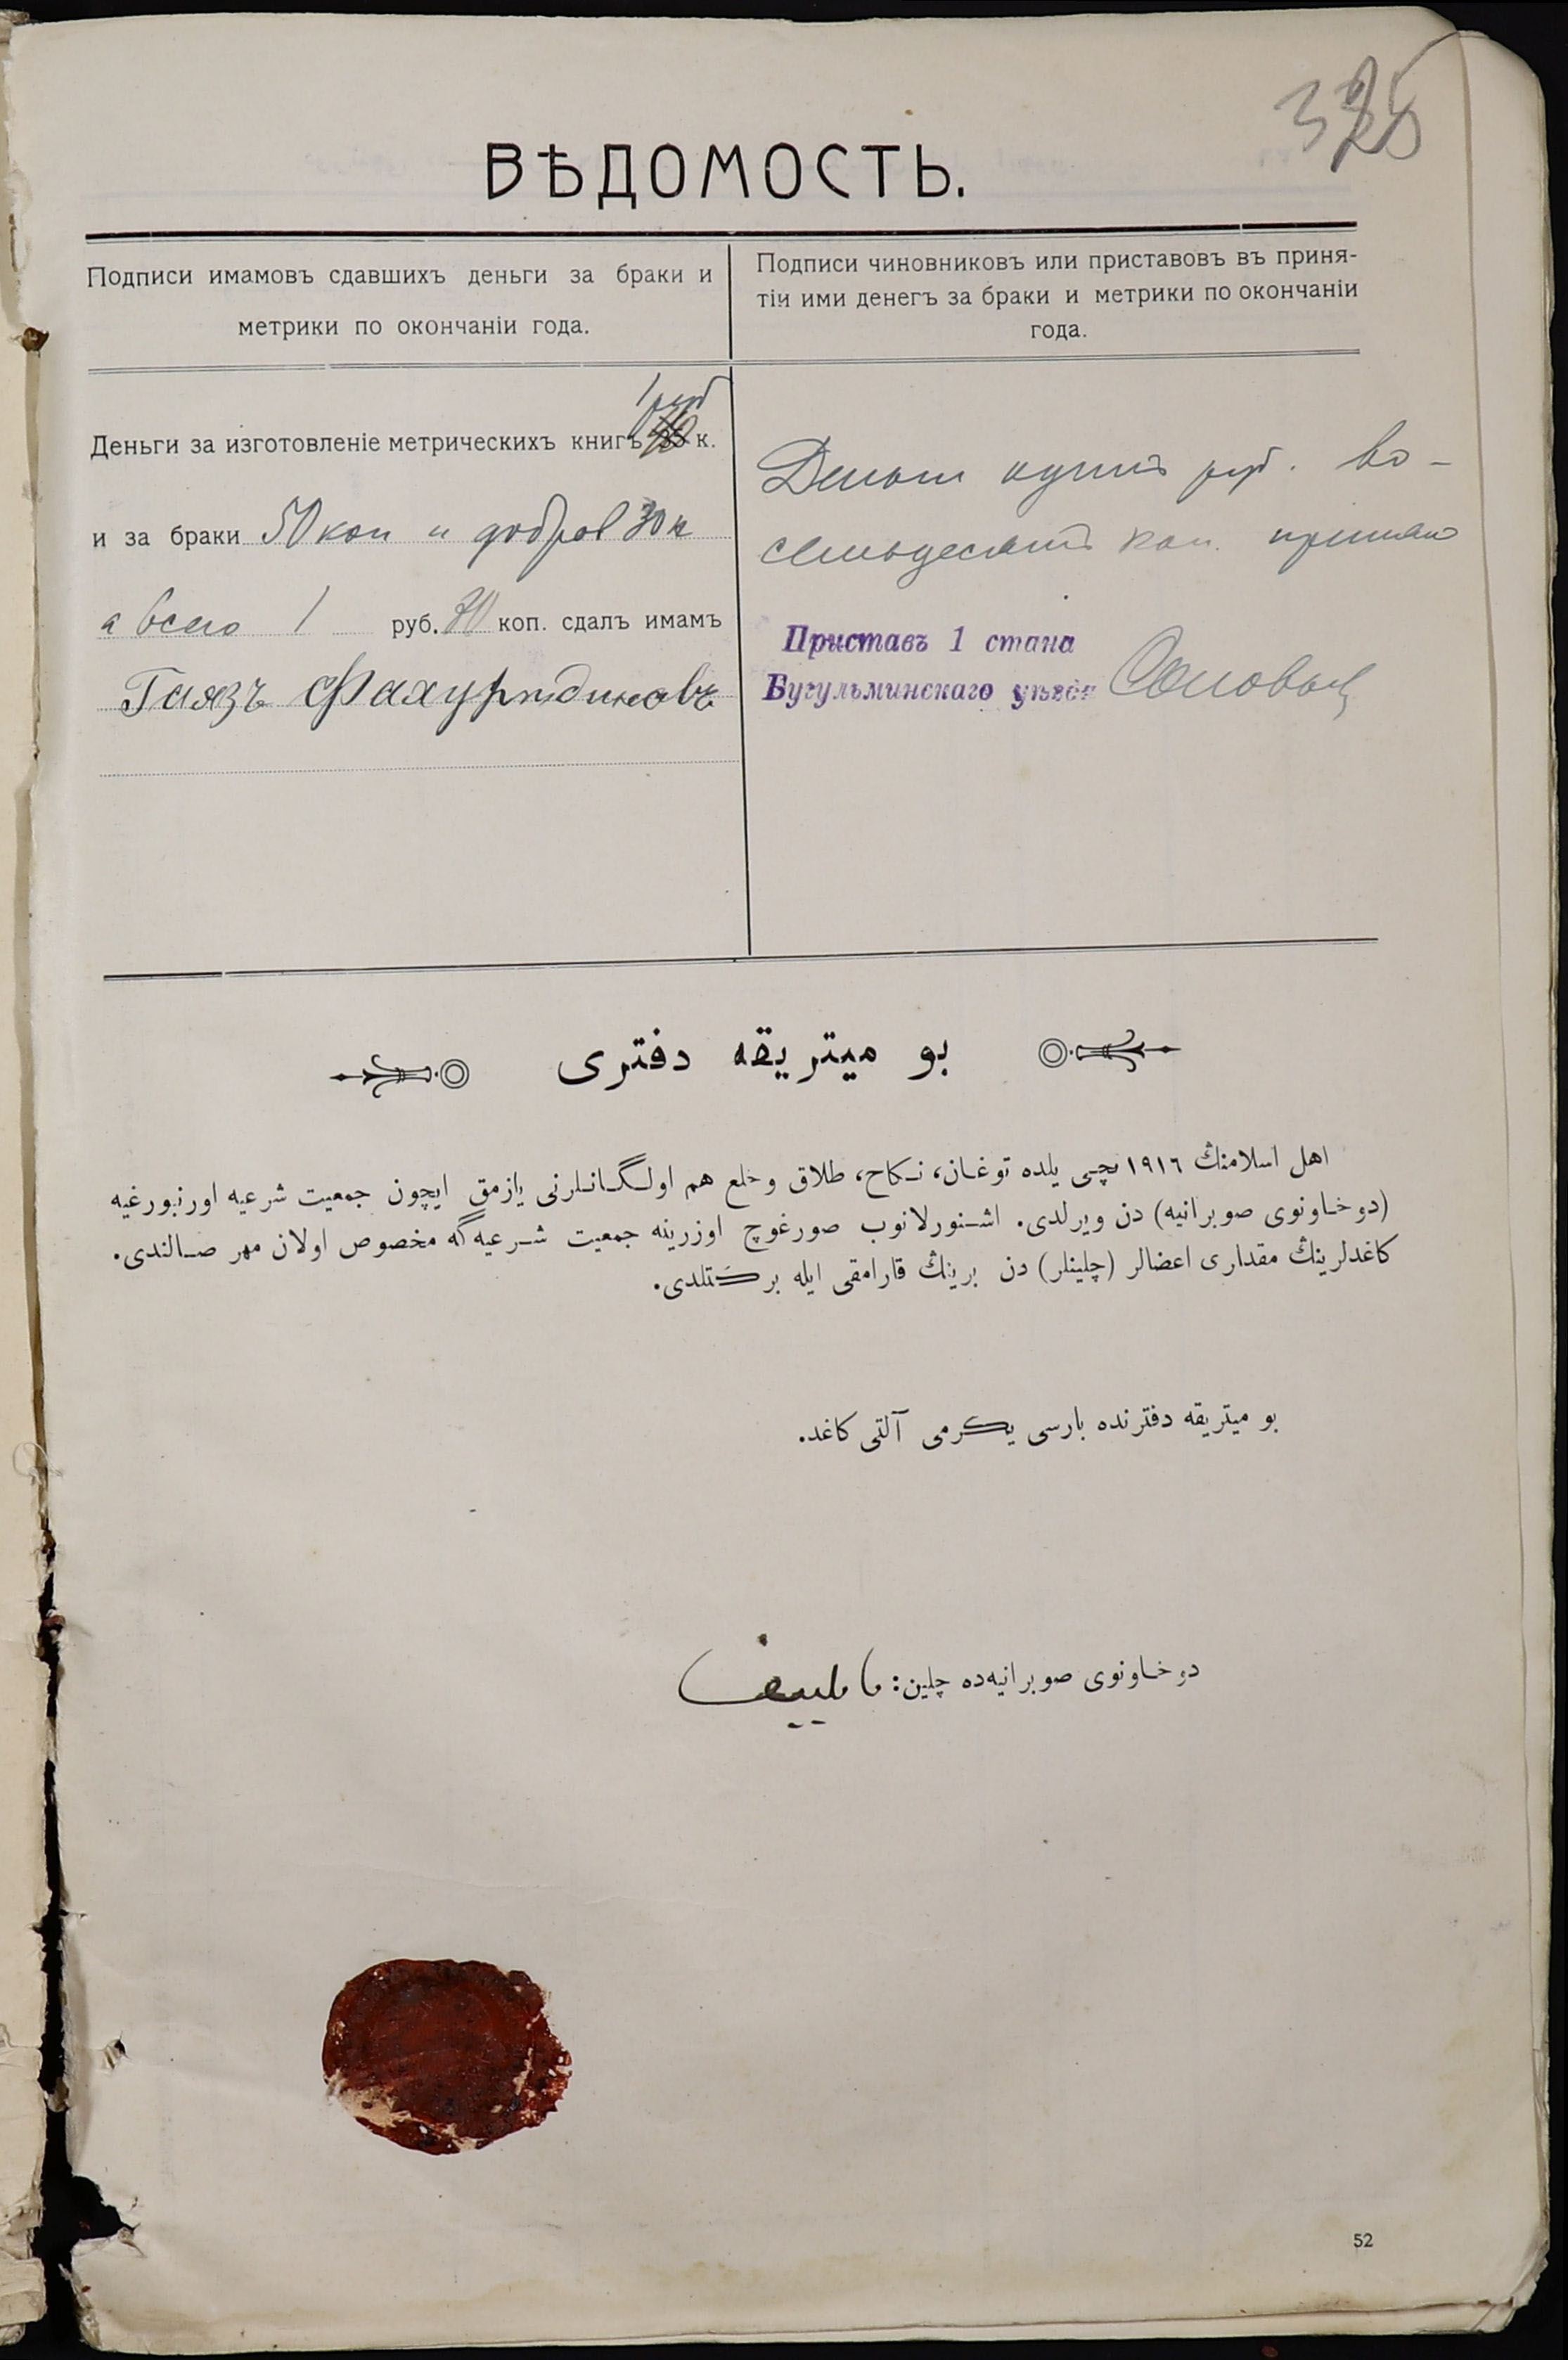 325
ВѢДОМОСТЬ.
Подписи имамовъ сдавшихъ деньги за браки и
метрики по окончаніи года.
Подписи чиновниковъ или приставовъ въ приня-
тіи ими денегъ за браки и метрики по окончаніи
года.
1 руб
Деньги за изготовленіе метрическихъ книгъ к.
и за браки 50 коп и добров 30 к
а всего 1 руб. 80 коп. сдалъ имамъ
Гаязъ Фахурътдиновъ
Деньги руб. во-
семьдесятъ коп. принялъ
Приставъ 1 стана
Бугульминскаго уѣзда
بو ميتريقه دفترى
اهل اسلامنڭ ١٩١٦ نچى يلده توغان، نكاح، طلاق وخلع هم اولگانلرنى يازمق ايچون جمعيت شرعيه اورنبورغيه
(دوخاونوى صوبرانيه) دن ويرلدى. اشنورلانوب صورغوچ اوزرينه جمعيت شرعيه گه مخصوص اولان مهر صالندى.
كاغدلرينڭ مقدارى اعضالر (چلينلر) دن برينڭ قارامقى ايله بركتلدى.
بو ميتريقه دفترنده بارسى يكرمى آلتى كاغد.
دوخاونوى صوبرانيه‌ده چلين:
52